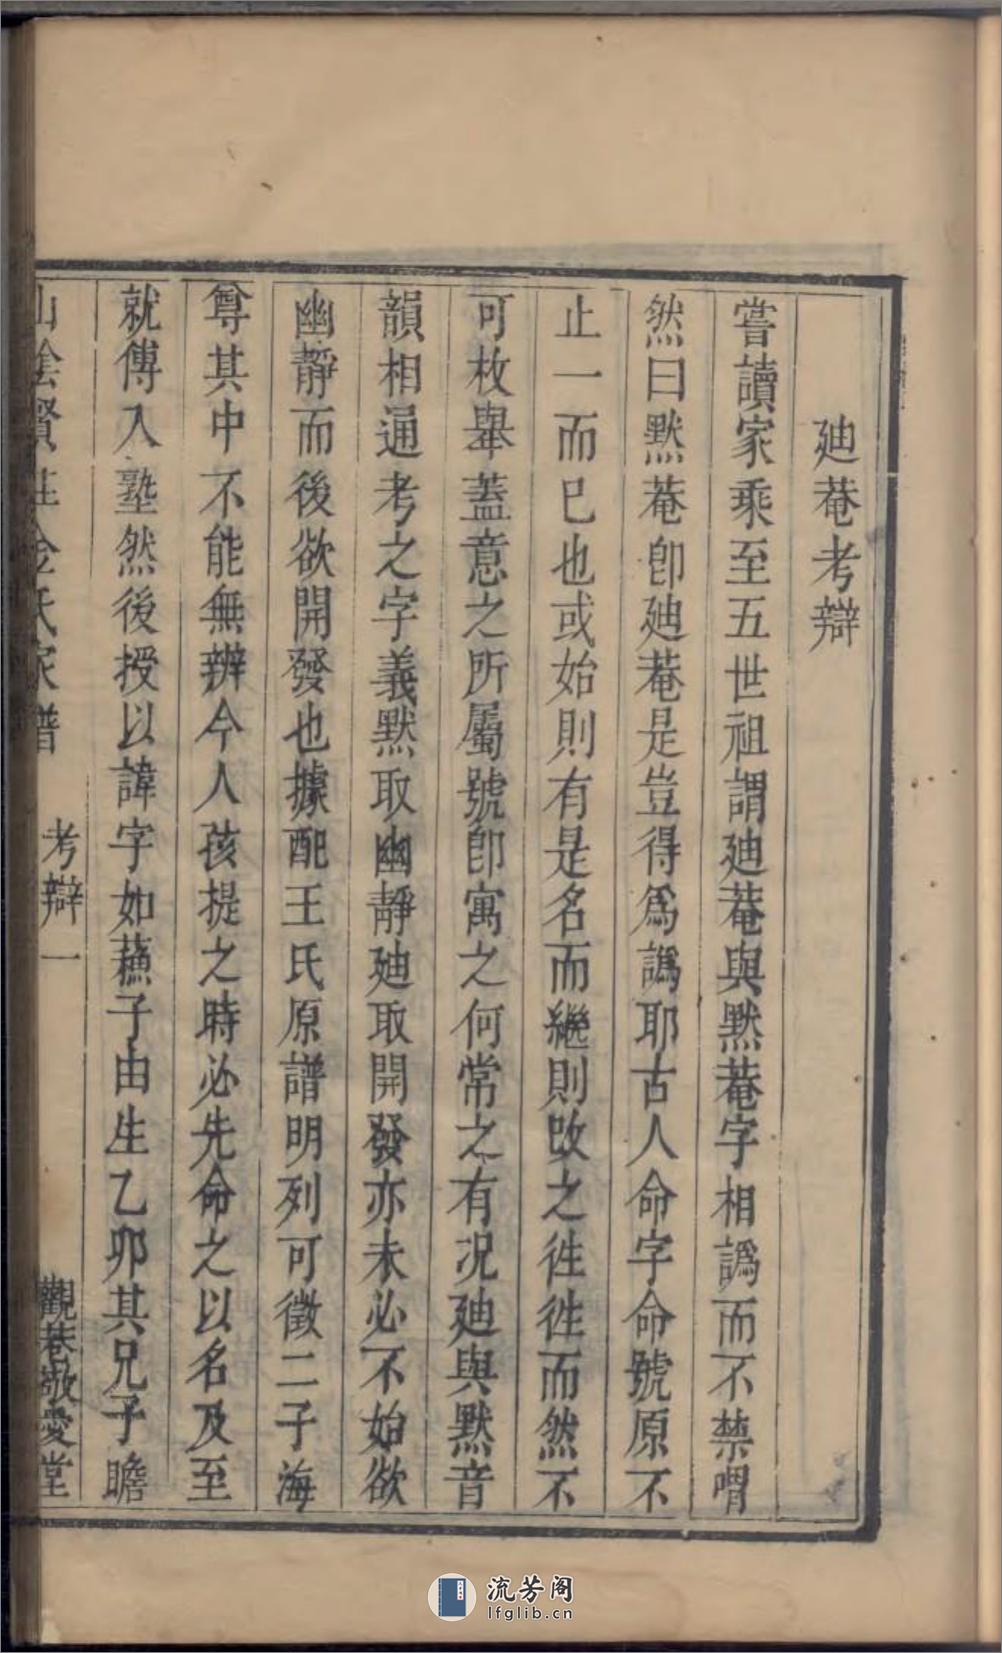 廸菴考辯
嘗讀家乘至五世祖謂廸菴與黙菴字相譌而不禁喟
然曰黙菴卽廸菴是豈得爲譌耶古人命字命號原不
止一而已也或始則有是名而繼則改之徃徃而然不
可枚舉蓋意之所屬號卽寓之何常之有况廸與黙音
韻相通考之字義黙取幽靜廸取開發亦未必不始欲
幽靜而後欲開發也據配王氏原譜明列可徵二子海
尊其中不能無辨今人孩提之時必先命之以名及至
就傅入塾然後授以諱字如蘓子由生乙卯其兄子瞻
山陰賢莊金氏家譜 考辯一 觀巷敬愛堂
流芳阁
lfglib.cn